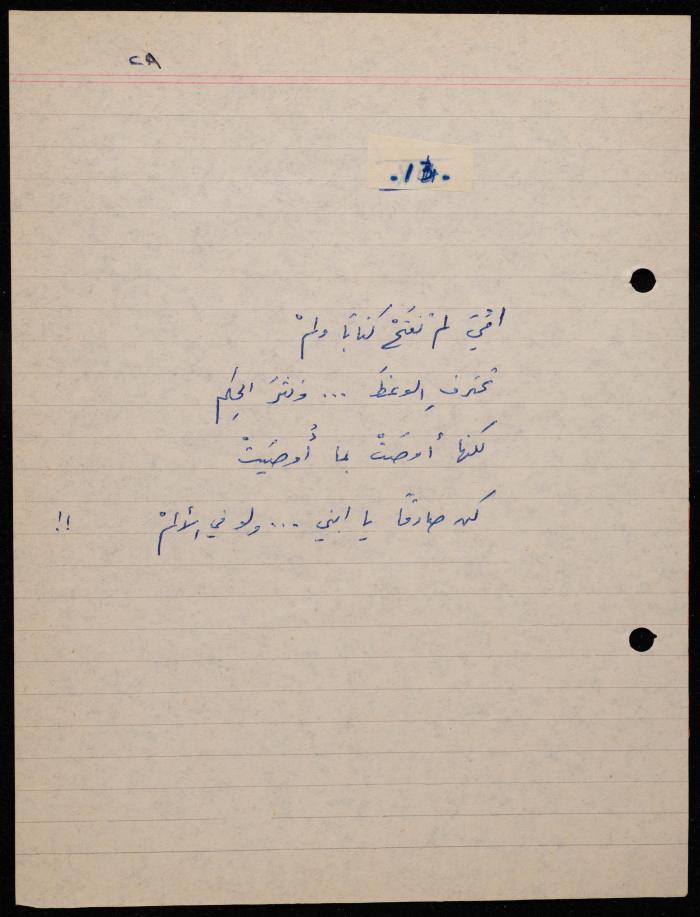 ٢٨
أمّيَ لمْ تفتَحْ كتابًا ولمْ
تحترفِ الوعْظَ ... ونثرَ الحِكم
لكنها أوصَتْ بما أُوصيَتْ
كن صادقًا يا ابني ... ولو في الألمْ !!